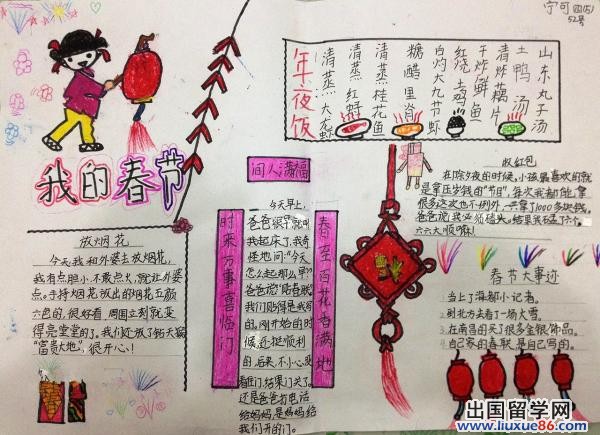 宁可 四(5)
52号
我的春节
放烟花
今天我和外婆去放烟花，
我有点胆小，不敢点火，就让外婆
点。手持烟花放出的烟花五颜
六色的，很好看，周围立刻就变
得亮堂堂的。我们还放了
"富贵大地"，很开心！
间人满福
时来万事喜临门
春至百花香满地
今天早上，
爸爸很早就叫
我起床了，我奇
怪地问："今天
怎么起那么早？"
爸爸说："贴春联。"
我们贴得是我写
的，刚开始的时
候，还挺顺利
的，后来，不小心没
看住门，结果门关了。
还是爸爸打电话
给妈妈，是妈妈给
我们开的门。
年夜饭
清蒸大龙虾
清蒸红蟳
清蒸桂花鱼
糖醋里脊
白灼大九节虾
红烧土鸡
干炸鲜鱼
清炸藕片
土鸭汤
山东丸子汤
收红包
在除夕夜的时候，小孩最喜欢的就
是拿压岁钱的"节目"，每次我都能拿
很多，这次也不例外，一共拿了1000多块钱。
结果我
六六大顺嘛！
春节大事迹
1、当上了海都小记者。
2、到北方去看了一场大雪。
3、在南昌的天了很多金银饰品。
4、自己家的春联，是自己写的。
出国留学网
www.liuxue86.com